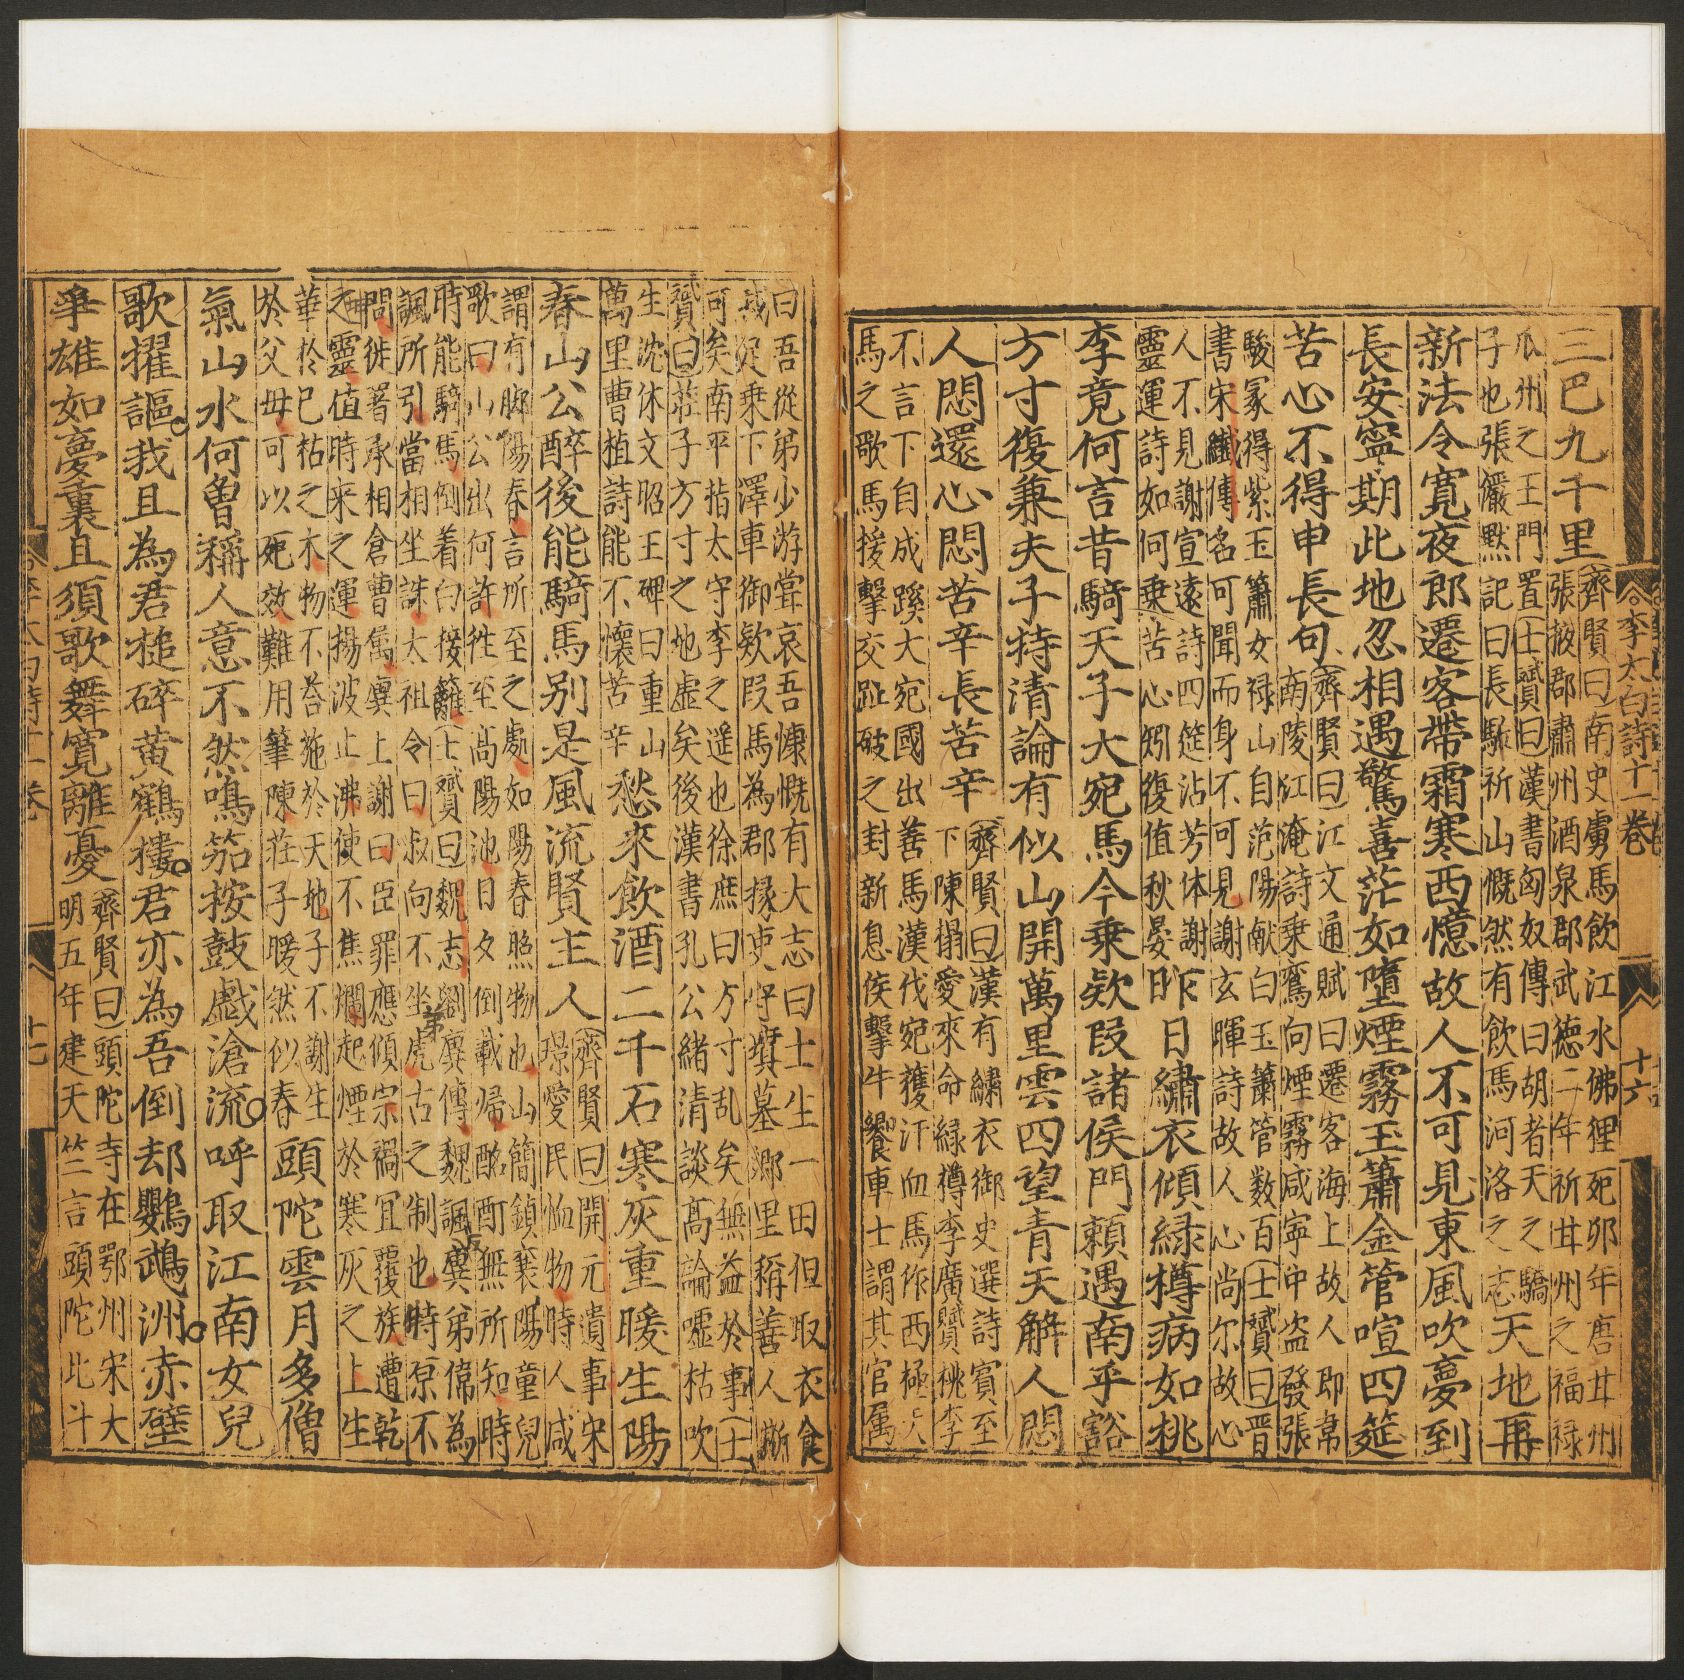 三巴九千里
齊賢曰南史虜馬飲江水佛狸死卯年唐廿州
張掖郡肅州酒泉郡武德二年祈廿州之福祿
瓜州之玉門置士贇曰漢書匈奴傳曰胡者天之驕
子也張儼默記曰長驅祈山慨然有飲馬河洛之志
天地再
新法令寬夜郎遷客帶霜寒西憶故人不可見東風吹夢到
長安寧期此地忽相遇驚喜茫如墮煙霧玉簫金管喧四筵
苦心不得申長句
齊賢曰江文通賦曰遷客海上故人即韋
南陵江淹詩乘鸞向煙霧咸寧中盗發張
駿冢得紫玉簫女禄山自范陽献白玉簫管数百士贇曰晋
書宋纖傳名可聞而身不可見謝玄暉詩故人心尚尔故心
人不見謝宣遠詩四筵沾芳体謝
靈運詩如何乗苦心矧復值秋晏
昨日繡衣傾緑樽病如桃
李竟何言昔騎天子大宛馬今乗欵段諸侯門頼遇南平豁
方寸復兼夫子持清論有似山開萬里雲四望青天解人悶
人悶還心悶苦辛長苦辛
齊賢曰漢有繡衣御史選詩賓至
下陳榻愛來命緑樽李廣贊桃李
不言下自成蹊大宛國出善馬漢伐宛獲汗血馬作西極天
馬之歌馬援擊交趾破之封新息侯擊牛饗車士謂其官属
曰吾從弟少游嘗哀吾慷慨有大志曰士生一田但取衣食
裁足乗下澤車御欵段馬為郡掾吏守墳墓郷里稱善人斯
可矣南平指太守李之遥也徐庶曰方寸乱矣無益於事士
贇曰莊子方寸之地虚矣後漢書孔公緒清談髙論嘘枯吹
生沈休文昭王碑曰重山
萬里曹植詩能不懷苦辛
愁來飲酒二千石寒灰重暖生陽
春山公醉後能騎馬别是風流賢主人
齊賢曰開元遺事宋
璟愛民恤物時人咸
謂有脚陽春言所至之處如陽春照物也山簡鎮襄陽童兒
歌曰山公出何許徃至髙陽池日夕倒載帰酩酊無所知時
時能騎馬倒着白接䍦士贇曰魏志劉廙傳魏諷弟偉為
諷所引當相坐誅太祖令曰叔向不坐虎古之制也特原不
問徙署丞相倉曹属廙上謝曰臣罪應傾宗禍宜覆族遭乾
之靈值時来之運揚波止沸使不焦爛起煙於寒灰之上生
華於已枯之木物不荅施於天地子不謝生
於父母可以死效難用筆陳莊子暖然似春
頭陀雲月多僧
氣山水何曾稱人意不然鳴笳按鼓戯滄流呼取江南女兒
歌擢謳我且為君槌碎黄鶴樓君亦為吾倒却鸚鵡洲赤壁
爭雄如夢裏且須歌舞寬離憂
齊賢曰頭陀寺在鄂州宋大
明五年建天竺言頭陀此斗
李太白詩十一巻
十六
十七